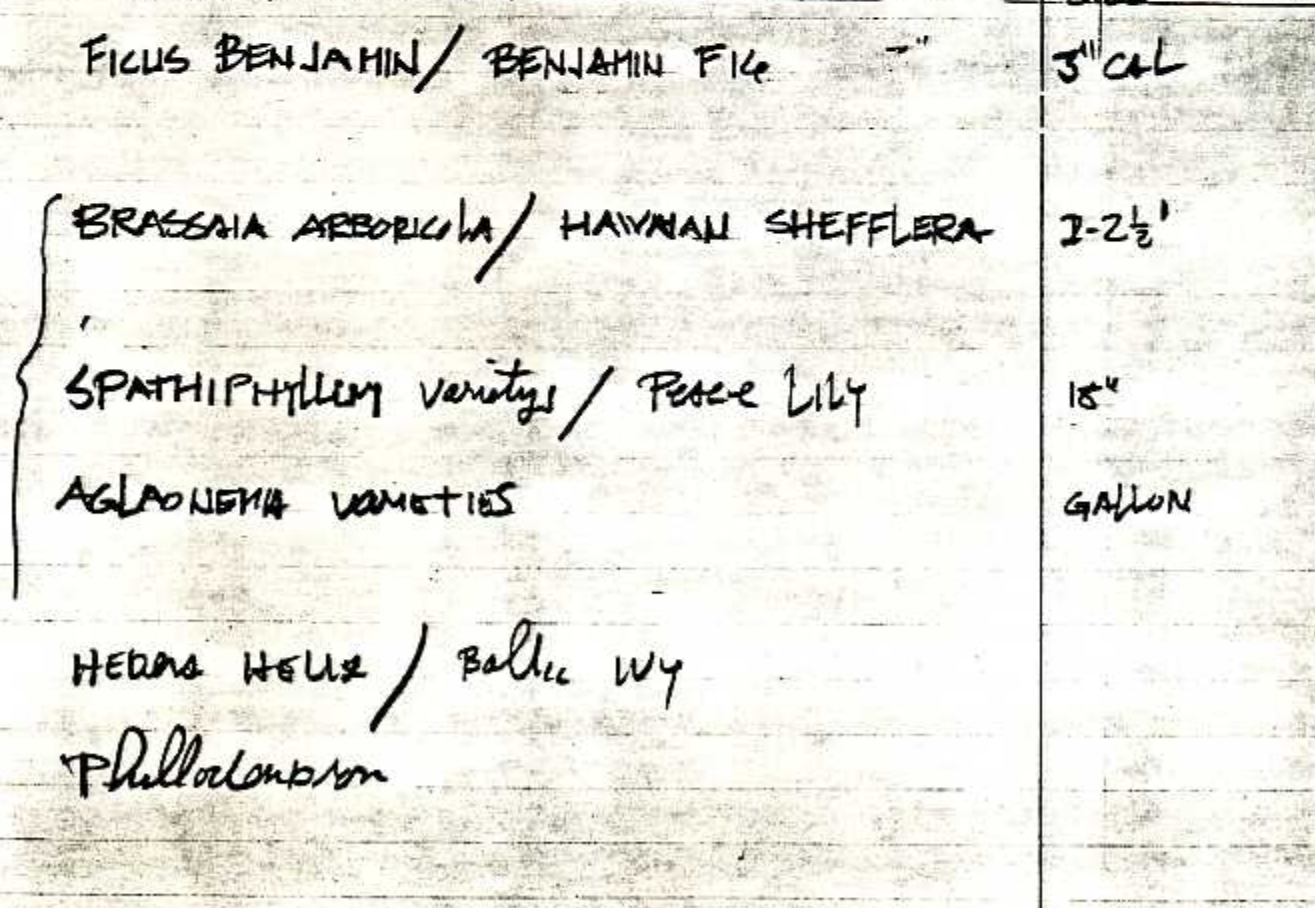 FICUS BENJAMIN / BENJAMIN FIG 3" CAL
BRASSAIA ARBORICOLA / HAWAIAN SHEFFLERA 2-2½'
SPATHIPHYLLUM varietys / Peace LILY 18"
AGLAONEMA VARIETIES GALLON
HEDERA HELIX / Baltic IVY